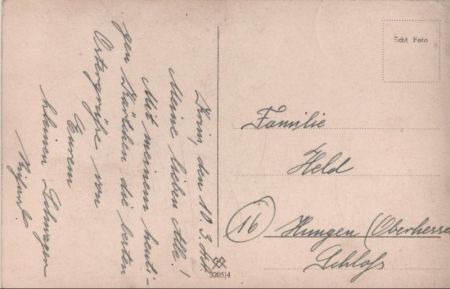 Krim, den 10.3.44
Meine lieben Alle!
Mit meinem heuti-
gen Kärtchen die besten
Ostergrüße von
Eurem
kleinen Schwager
Echt Foto
Familie
Held
16
Hungen (Oberhesse
Schloss
3205/4